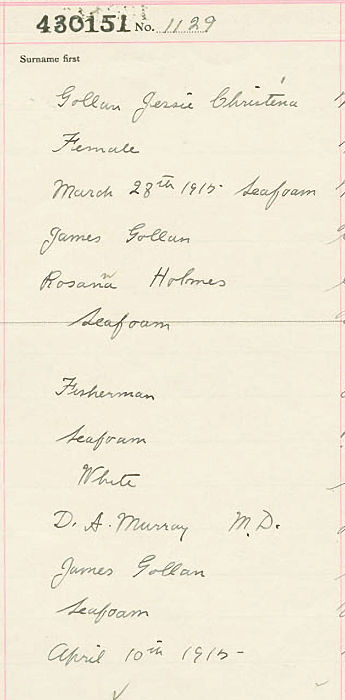 430151 No. 1129
Surname first
Gollan Jessie Christena
Female
March 28th 1915 Seafoam
James Gollan
Rosana Holmes
Seafoam
Fisherman
Seafoam
White
D. A. Murray M.D.
James Gollan
Seafoam
April 10th 1915